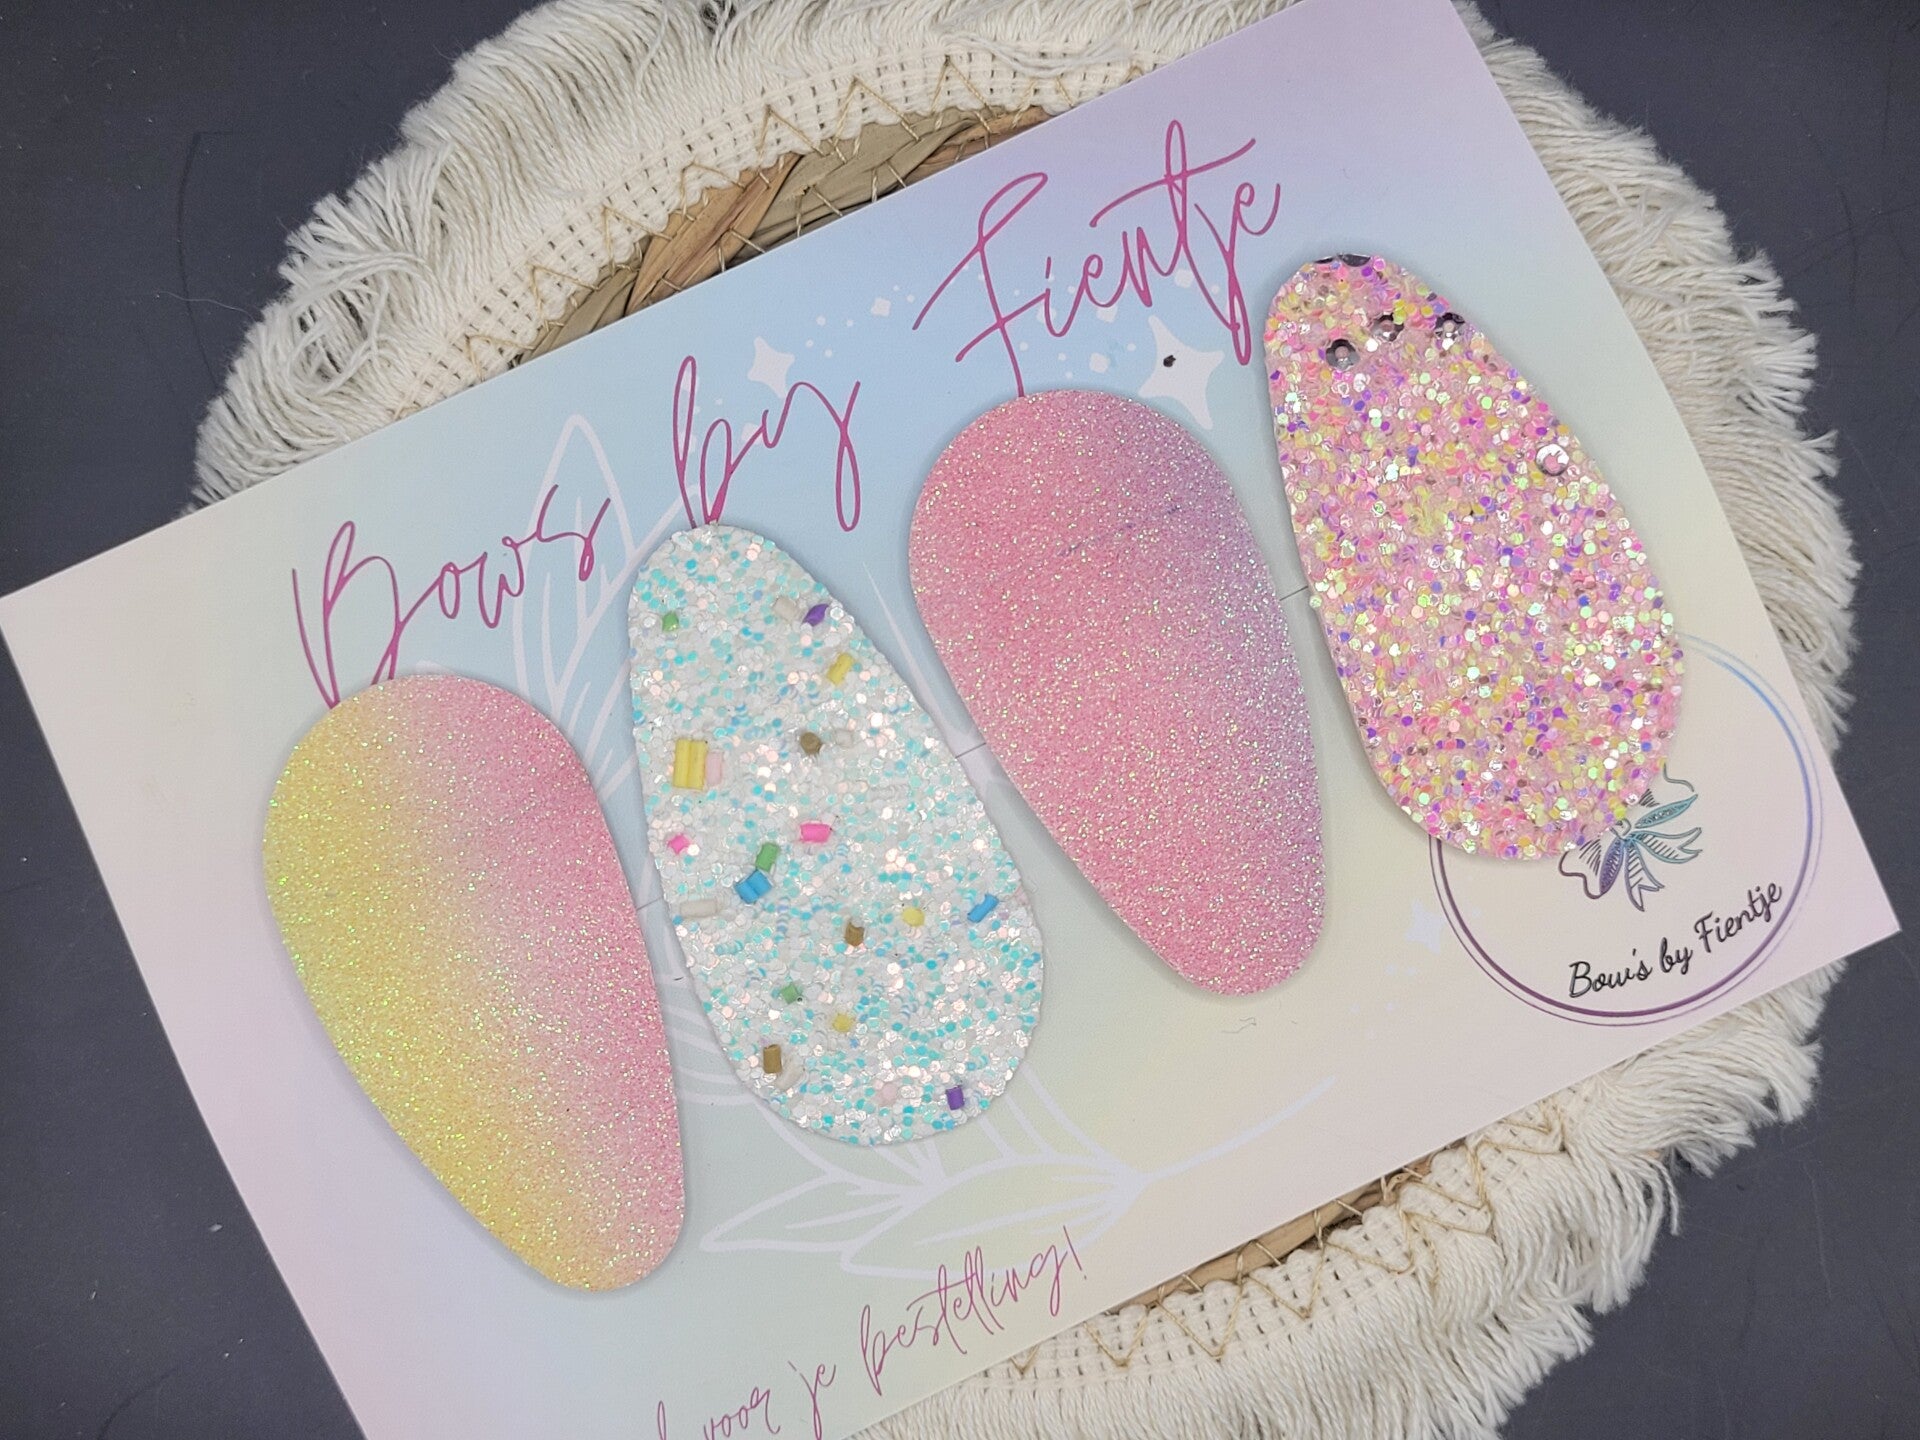 Bows by Fientje
Bow's by Fientje
voor je bestelling!